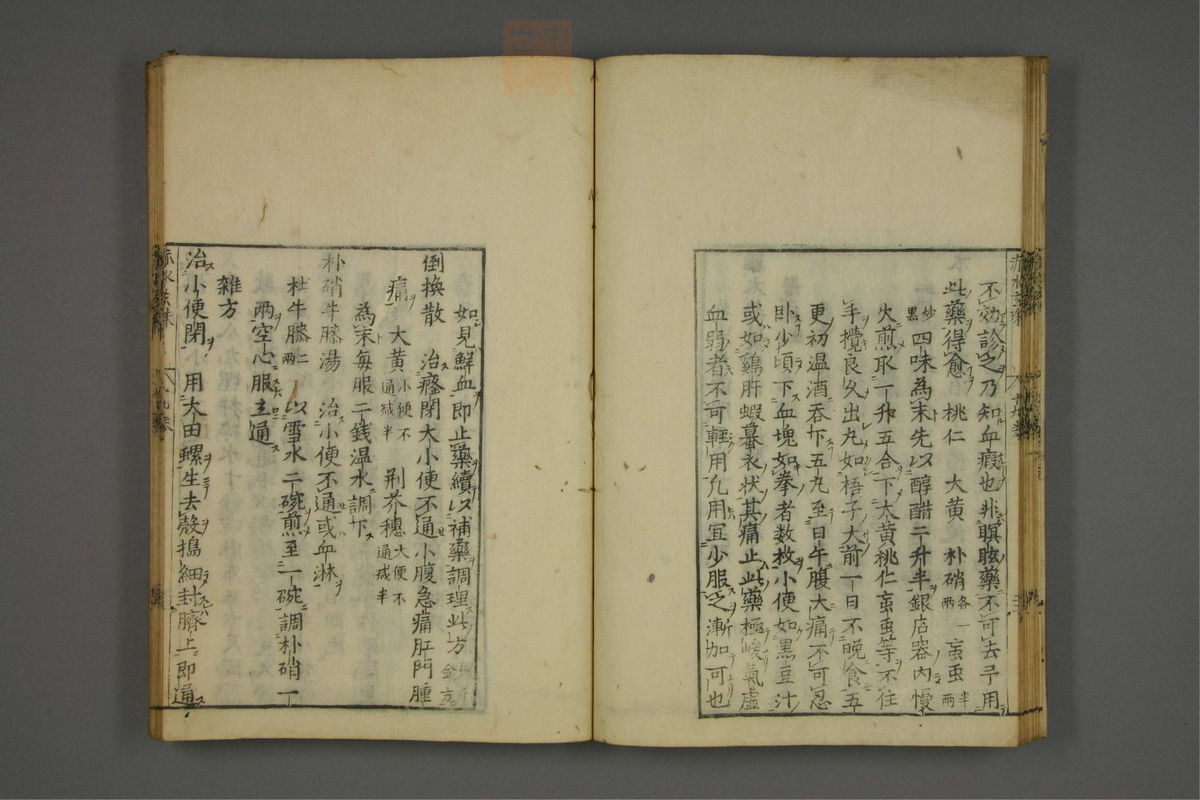 不効診之乃知血瘕也非瞑眩藥不可去予用
此藥得愈 桃仁 大黄 朴硝各一兩 䖟虫半兩
炒黒 四味為末先以醇醋二升半銀店器内慢
火煎取一升五合下大黄桃仁䖟虫等不住
手攪良久出丸如梧子大前一日不晩食五
更初温酒吞下五丸至日午腹大痛不可忍
卧少頃下血塊如拳者数枚小便如黒豆汁
或如鷄肝蝦蟇衣状其痛止此藥極峻氣虚
血弱者不可輕用凢用宜少服之漸加可也
如見鮮血即止藥續以補藥調理此方
倒換散 治癃閉大小便不通小腹急痛肛門腫
痛 大黄小便不通减半 荆芥穗大便不通减半
為末每服二銭温水調下
朴硝牛膝湯 治小便不通或血淋
杜牛膝二兩 以雪水二碗煎至一碗調朴硝一
兩空心服立通
雜方
治小便閉 用大田螺生去殼搗細封臍上即通